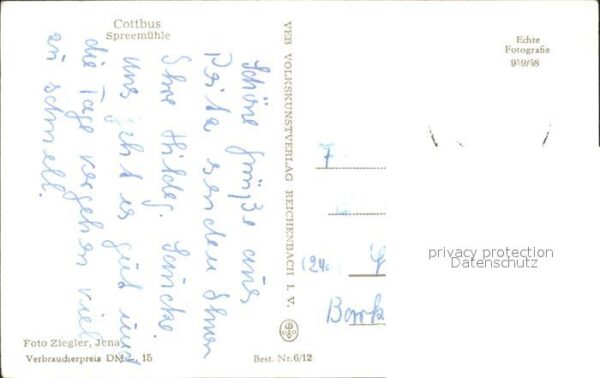 Cottbus
Spreemühle
Schöne Grüße aus
senden Ihnen
Ihre Hildeg.
uns geht es gut und
die Tage vergehen viel
zu schnell.
VEB VOLKSKUNSTVERLAG REICHENBACH I. V.
Echte
Fotografie
9/59/58
privacy protection
Datenschutz
(24
Bork
Foto Ziegler, Jena
Verbraucherpreis DM –.15
Best. Nr. 6/12